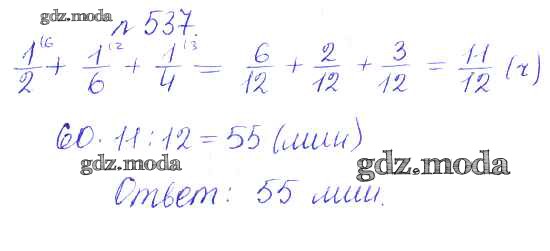 gdz.moda
№ 537.
1/2 ⁽⁶ + 1/6 ⁽² + 1/4 ⁽³ = 6/12 + 2/12 + 3/12 = 11/12 (г)
60 · 11 : 12 = 55 (мин)
gdz.moda
gdz.moda
Ответ: 55 мин.